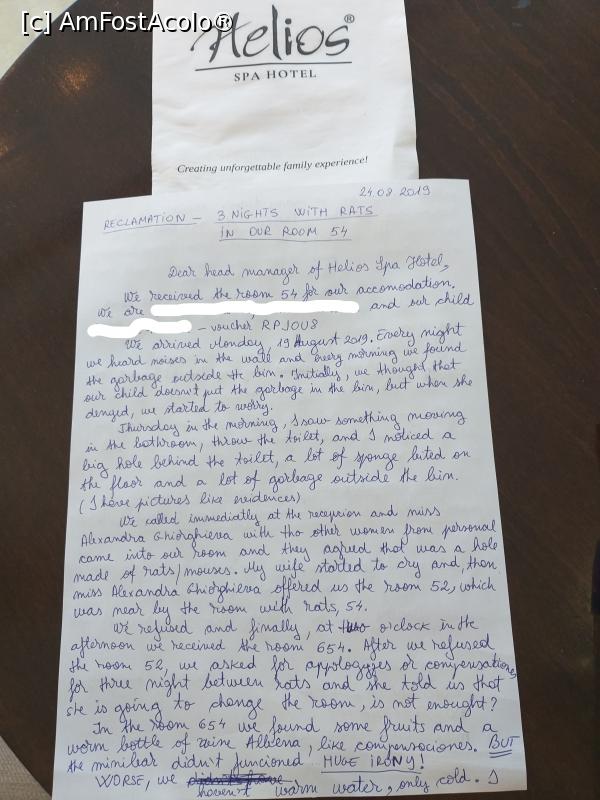 [c] AmFostAcolo®
Helios®
SPA HOTEL
Creating unforgettable family experience!
24.08 2019
RECLAMATION - 3 NIGHTS WITH RATS
IN OUR ROOM 54
Dear head manager of Helios Spa Hotel,
We received the room 54 for our accomodation.
We are and our child
- voucher RPJOU8
We arrived Monday, 19 August 2019. Every night
we heard noises in the wall and every morning we found
the garbage outside the bin. Initially, we thought that
our child doesn't put the garbage in the bin, but when she
denyed, we started to worry.
Thursday in the morning, I saw something moving
in the bathroom, throw the toilet, and I noticed a
big hole behind the toilet, a lot of sponge bited on
the floor and a lot of garbage outside the bin.
(I have pictures like evidences)
We called immediatly at the reception and miss
Alexandra Ghiorghieva with tho other women from personal
came into our room and they agreed that was a hole
made of rats/mouses. My wife started to cry and then
miss Alexandra Ghiorghieva offered us the room 52, which
was near by the room with rats, 54.
We refused and finally, at o'clock in the
afternoon we received the room 654. After we refused
the room 52, we asked for appologyes or compensationes
for three night between rats and she told us that
she is going to change the room, is not enought?
In the room 654 we found some fruits and a
worm bottle of wine Albena, like compensaciones. BUT
the minibar didn't funcioned HUGE IRONY!
WORSE, we haven't warm water, only cold. I